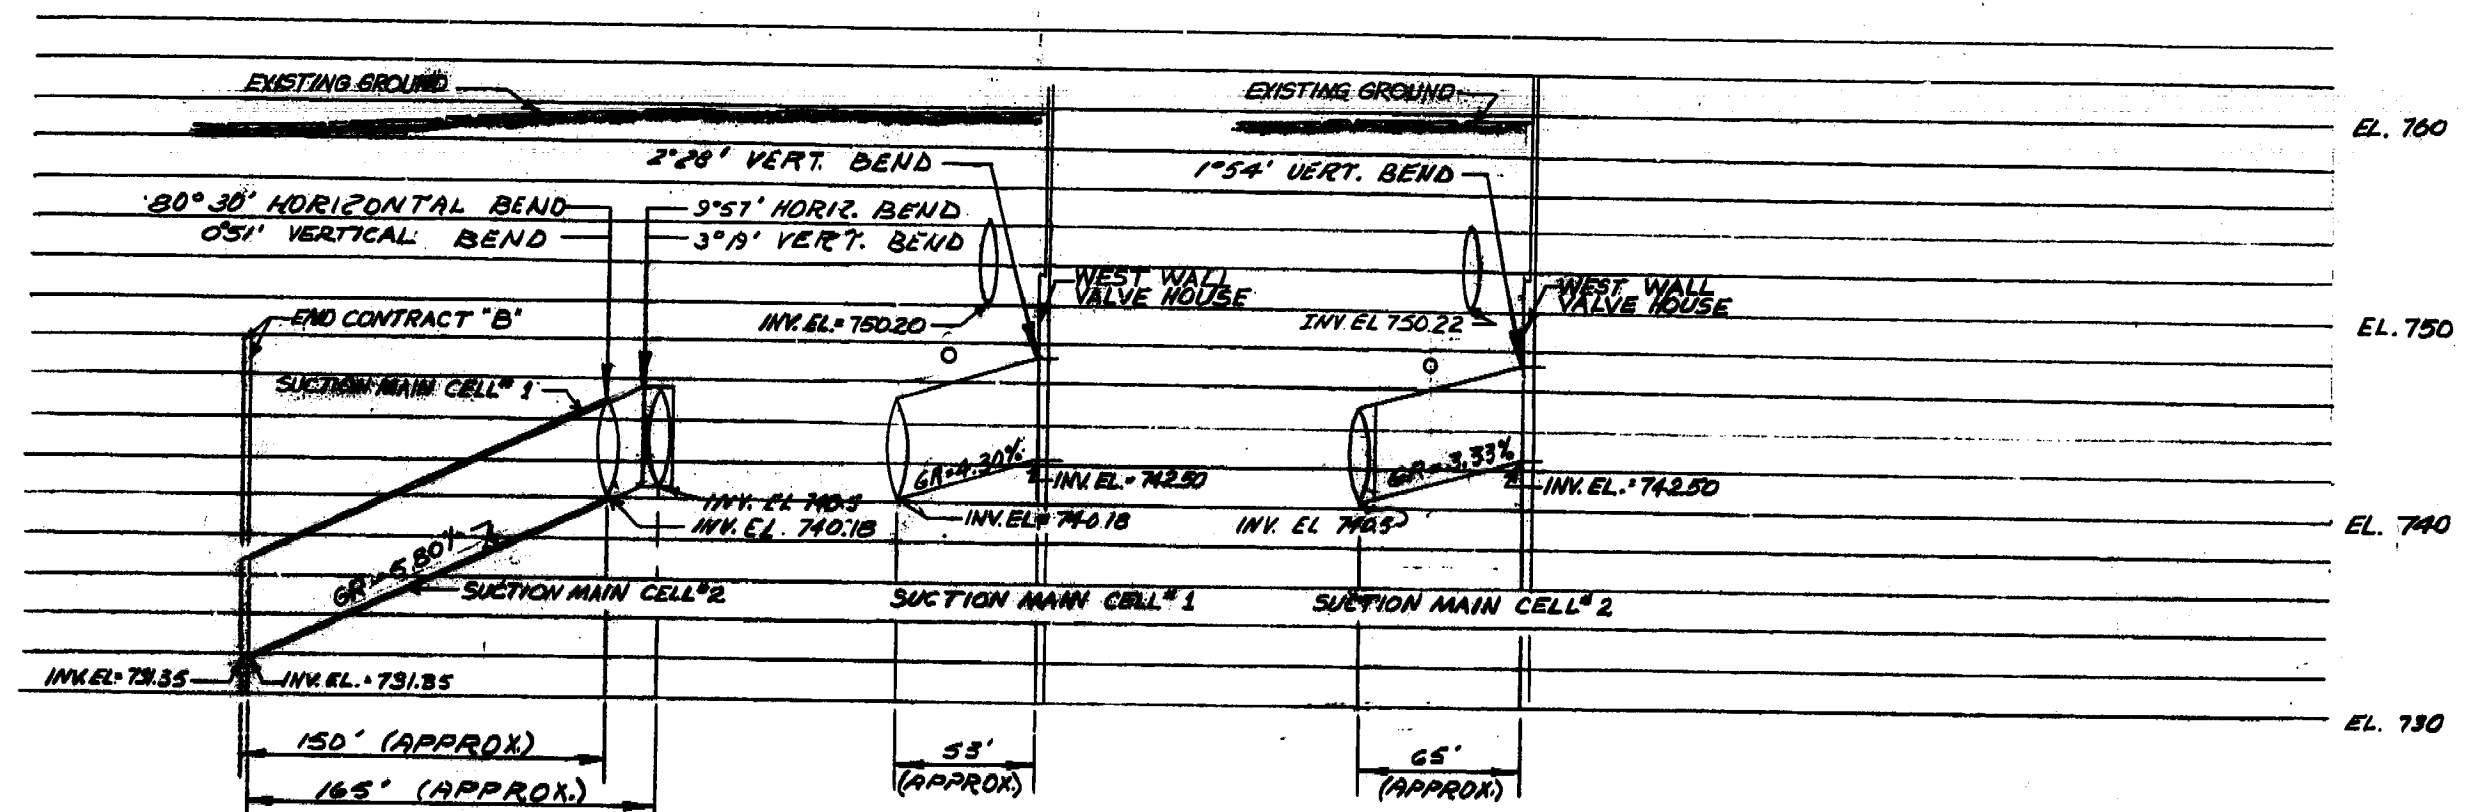 EXISTING GROUND
EXISTING GROUND
EL. 760
2°28' VERT. BEND
1°54' VERT. BEND
80°30' HORIZONTAL BEND
9°57' HORIZ. BEND
0°51' VERTICAL BEND
3°19' VERT. BEND
WEST WALL
VALVE HOUSE
WEST WALL
VALVE HOUSE
END CONTRACT "B"
INV. EL.= 750.20
INV. EL 750.22
EL. 750
SUCTION MAIN CELL# 1
GR=4.30%
GR=3.33%
INV. EL.= 742.50
INV. EL.= 742.50
INV. EL 740.5
INV. EL. 740.18
INV. EL= 740.18
INV. EL 740.5
EL. 740
GR=5.80%
SUCTION MAIN CELL#2
SUCTION MAIN CELL# 1
SUCTION MAIN CELL# 2
INV. EL= 731.35
INV. EL.= 731.85
EL. 730
150' (APPROX.)
53'
(APPROX.)
65'
(APPROX.)
165' (APPROX.)